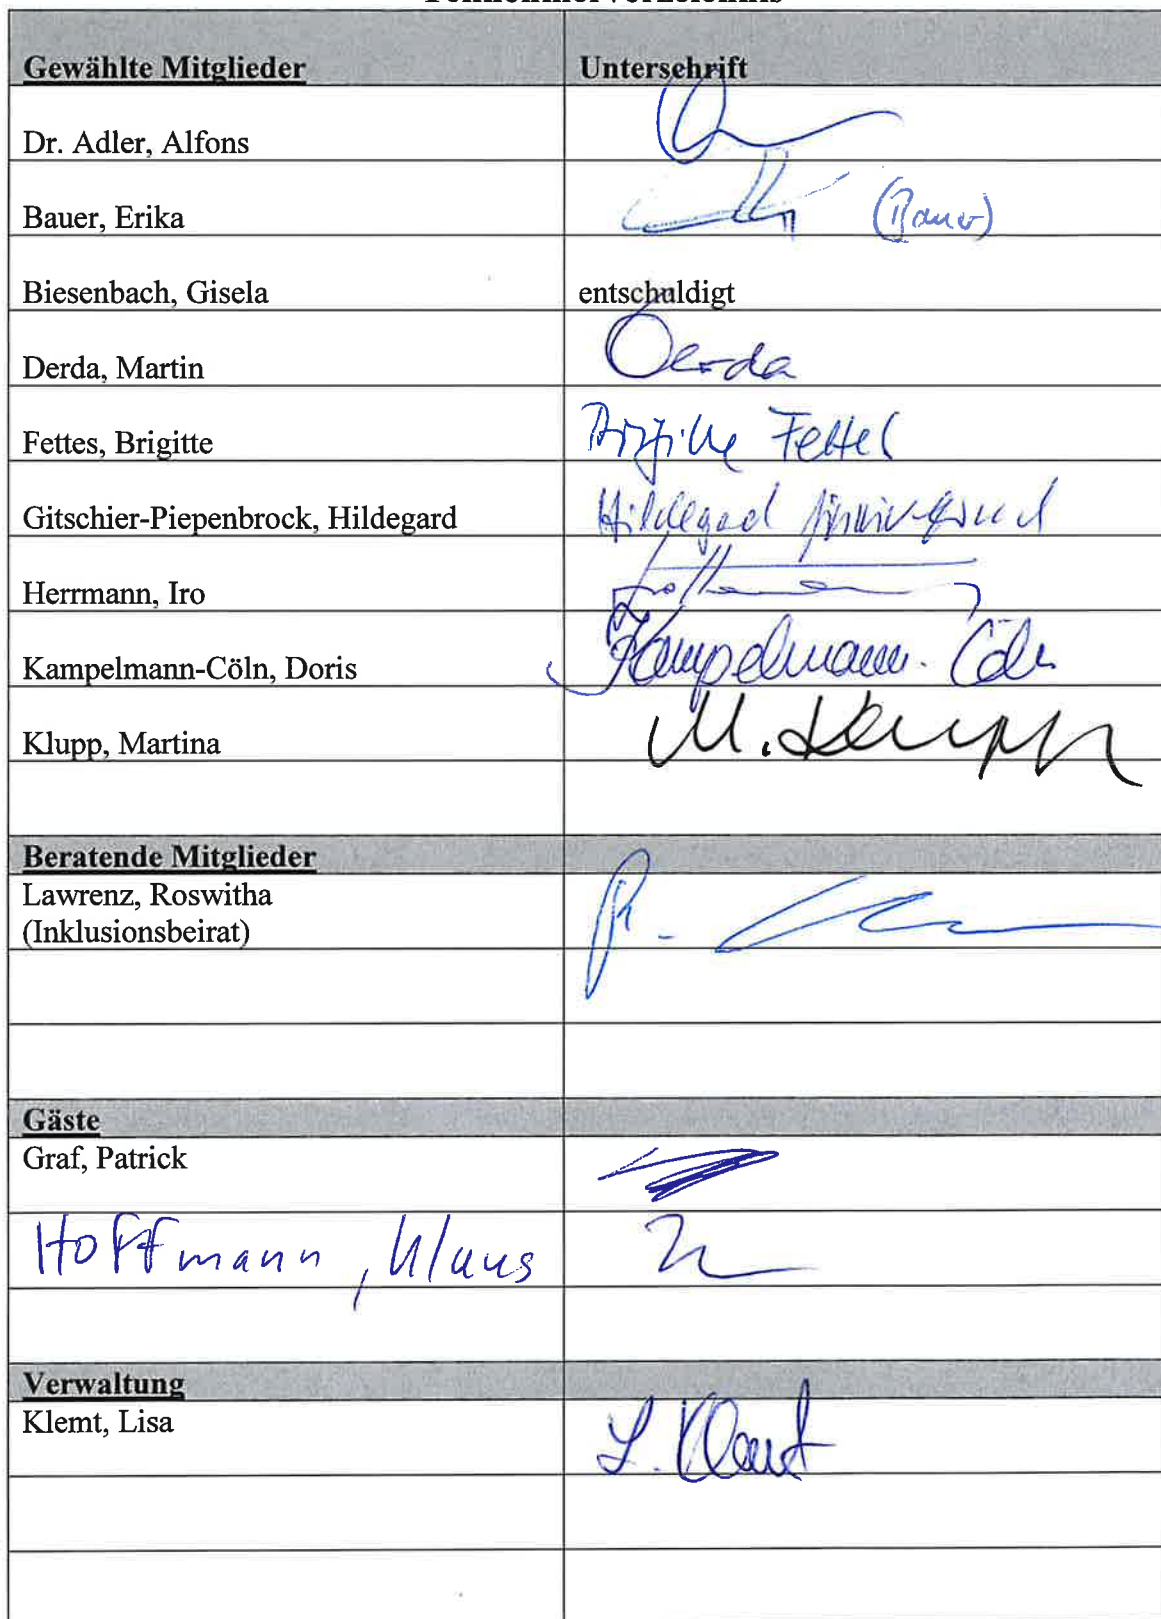 Teilnehmerverzeichnis
Gewählte Mitglieder Unterschrift
Dr. Adler, Alfons
Bauer, Erika (Bauer)
Biesenbach, Gisela entschuldigt
Derda, Martin Derda
Fettes, Brigitte Brigitte Fettes
Gitschier-Piepenbrock, Hildegard Hildegard
Herrmann, Iro
Kampelmann-Cöln, Doris Kampelmann-Cöln
Klupp, Martina M. Klupp
Beratende Mitglieder
Lawrenz, Roswitha
(Inklusionsbeirat)
Gäste
Graf, Patrick
Hoffmann, Klaus
Verwaltung
Klemt, Lisa L. Klemt